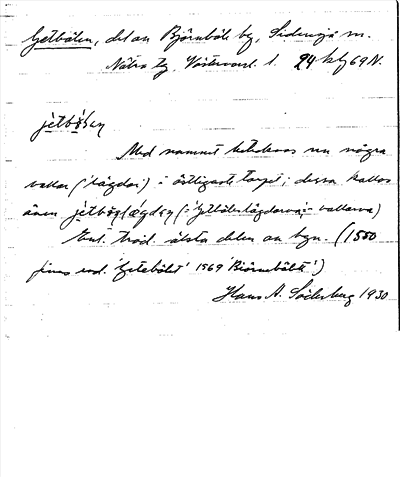 Getbölen, del av Björnböle by, Sidensjö sn.
Nätra tg. Västernorrl. l. 24 kbf 69 N.
jètbö̀len
Med namnet betecknas nu några
vallar ('lägdor') i östligaste torpet; dessa kallas
även jètbö̀ļægdeɳ (= 'Getbölenlägdorna', -vallarna)
Enl. trad. älsta delen av byn. (1550
finns end. 'Getebölit' 1569 'Biörnebölit')
Hans A. Söderberg 1930